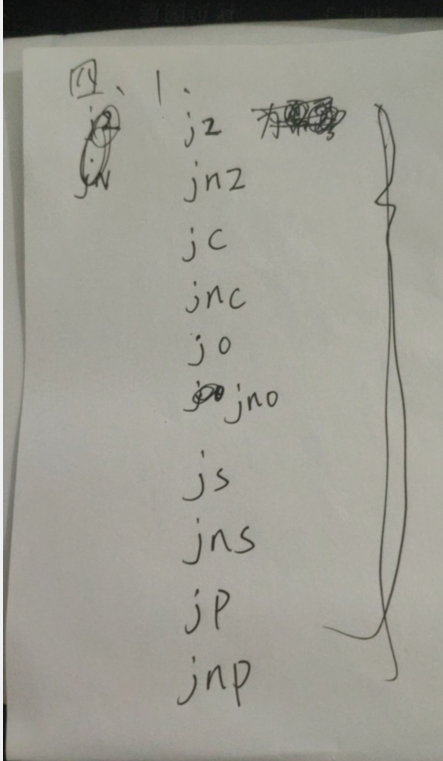 四、1、
jz 有
jnz
jc
jnc
jo
jno
js
jns
jp
jnp